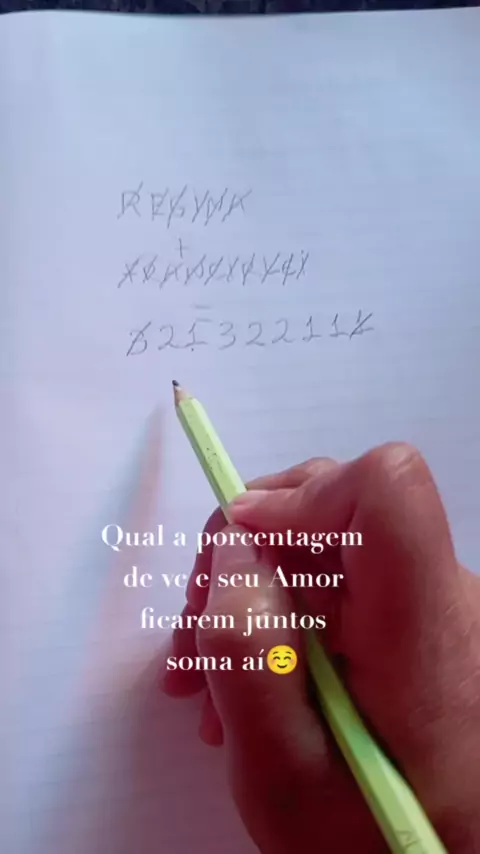 +
=
321322112
Qual a porcentagem
de vc e seu Amor
ficarem juntos
soma aí☺️